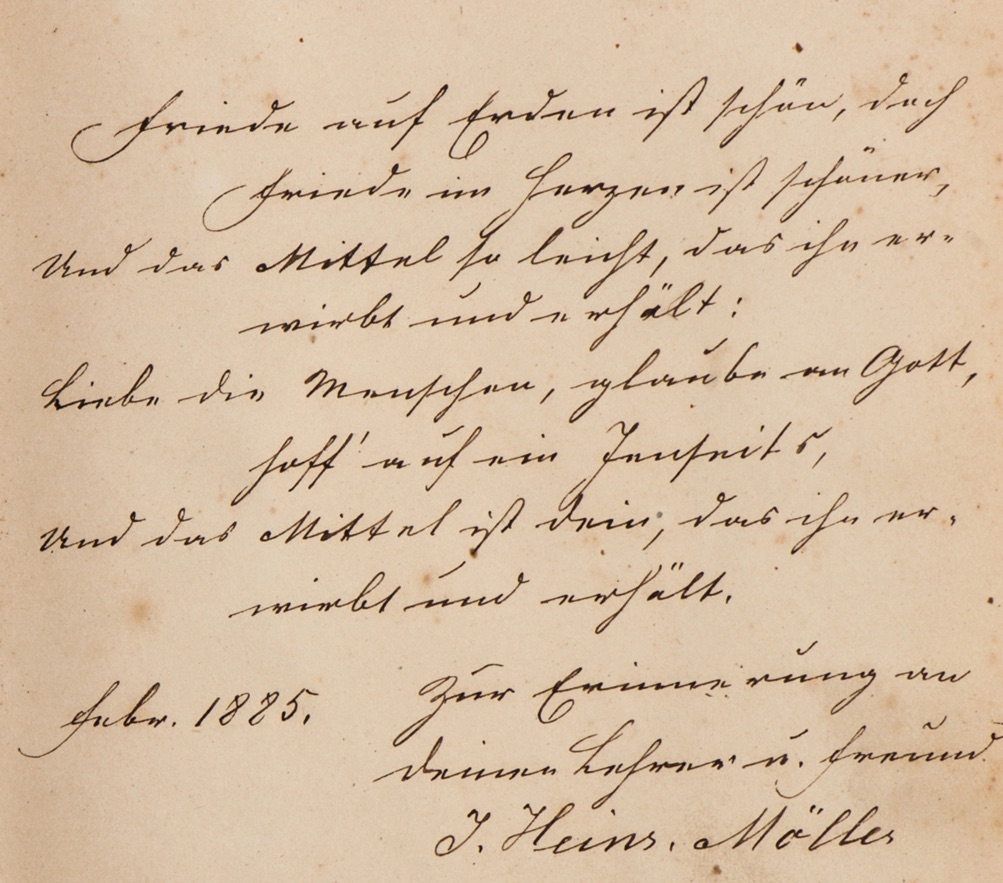 Friede auf Erden ist schön, doch
Friede im Herzen ist schöner,
Und das Mittel so leicht, das ihn er-
wirbt und erhält:
Liebe die Menschen, glaube an Gott,
hoff' auf ein Jenseits,
Und das Mittel ist dein, das ihn er-
wirbt und erhält.
Febr. 1885.
Zur Erinnerung an
deinen Lehrer u. Freund
J. Heinr. Möller